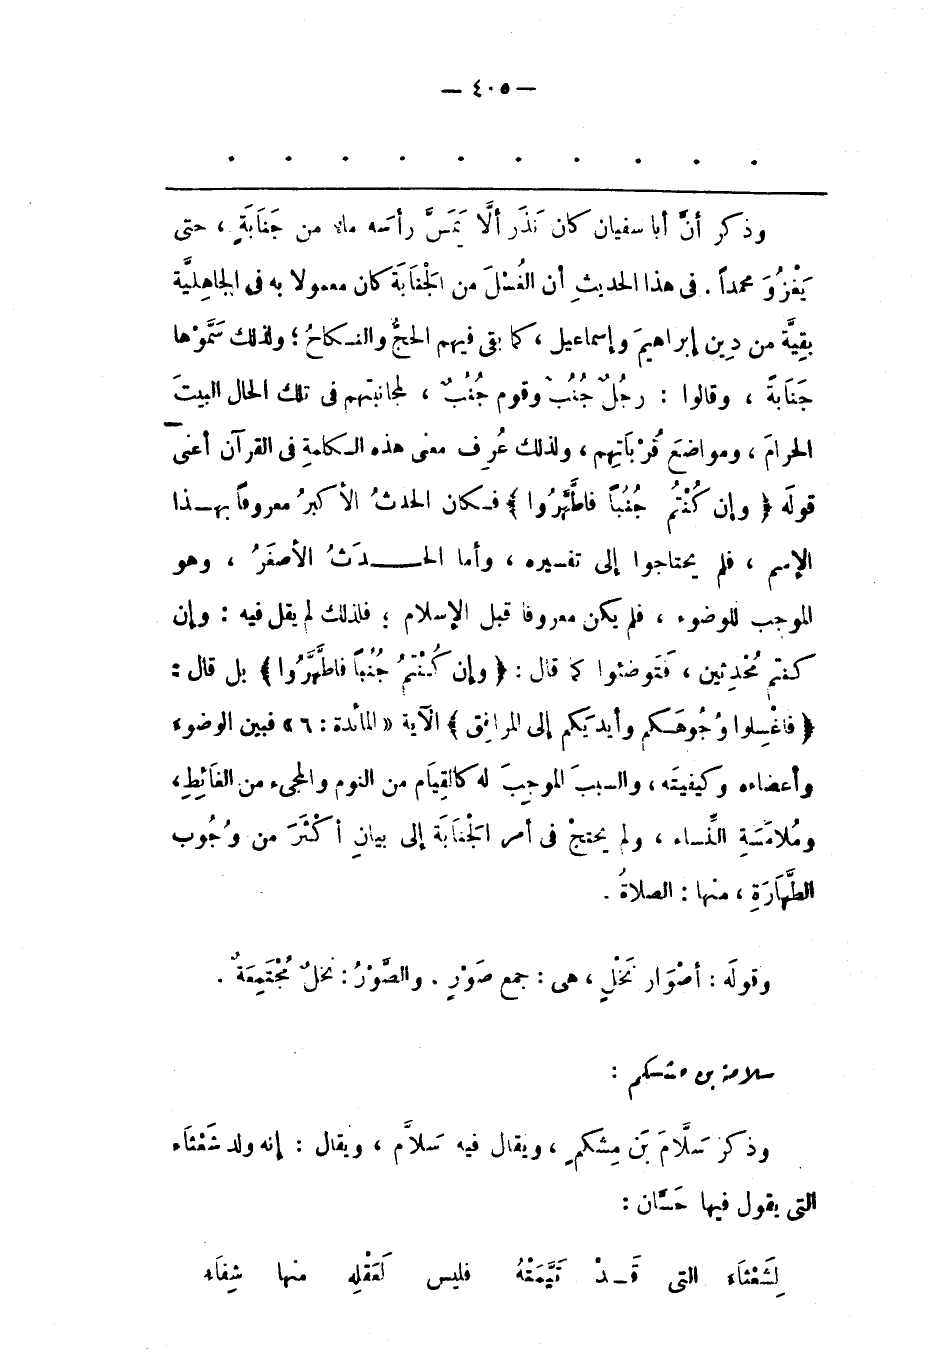 — ٤٠٥ —
. . . . . . . . . .
وذكر أنَّ أبا سفيان كان نَذَر ألَّا يَمَسَّ رأسَه ماء من جَنَابَةٍ ، حتى
يَغْزُوَ محمداً . فى هذا الحديثِ أن الغُسْلَ من الجْنَابَة كان معمولا به فى الجاهِليَّة
بقِيَّة من دِين إبراهيمَ وإسماعيل ، كما بقى فيهم الحجُّ والنـكاحُ ؛ ولذلك سَمَّوْها
جَنَابةً ، وقالوا : رجُلٌ جُنُبٌ وقوم جُنُبٌ ، لمجانبتهم فى تلك الحال البيتَ
الحرامَ ، ومواضعَ قُرْبَاتِهم ، ولذلك عُرِف معنى هذه الـكلمةِ فى القرآن أعنى
قولَه ﴿ وإن كُنْتُمُ جُنُبَاً فاطَّهَّرُوا ﴾ فـكان الحدثُ الأكبرُ معروفاً بهـذا
الإسم ، فلم يحتاجوا إلى تفسيره ، وأما الحـــدَثُ الأصغَرُ ، وهو
الموجب للوضوء ، فلم يكن معروفا قبل الإسلام ؛ فلذلك لم يقل فيه : وإن
كنتم مُحْدِثين ، فَتَوضئوا كما قال : ﴿ وإن كُنْتُمُ جُنُباً فاطَّهَّرُوا ﴾ بل قال :
﴿ فاغْسِلوا وُجُوهَـكم وأيدِيَكم إلى المرافِق ﴾ الآية « المائدة : ٦ » فبين الوضوء
وأعضاءه وكيفيتَه ، والسببَ الموجِبَ له كالقِيَام من النوم والمجىء من الغَائِطِ ،
ومُلامَسَةِ النِّساء ، ولم يحتجْ فى أمر الجْنَابَة إلى بيانٍ أكْثَرَ من وُجُوب
الطَّهَارَةِ ، منها : الصلاةُ .
وقولَه : أصْوَار نَخْلٍ ، هى : جمع صَوْرٍ . والصَّوْرُ : نخلٌ مُجْتَمِعَةٌ .
سلامة بن مشكم :
وذكر سَلَّامَ بَن مِشكمٍ ، ويقال فيه سَلاَّم ، ويقال : إنه ولد شَعْثَاء
التى يقول فيها حَسَّان :
لِشَعْثَاء التى قَـدْ تَيَّمَتْهُ فليس لَعَقْلِهِ منها شِفَاء